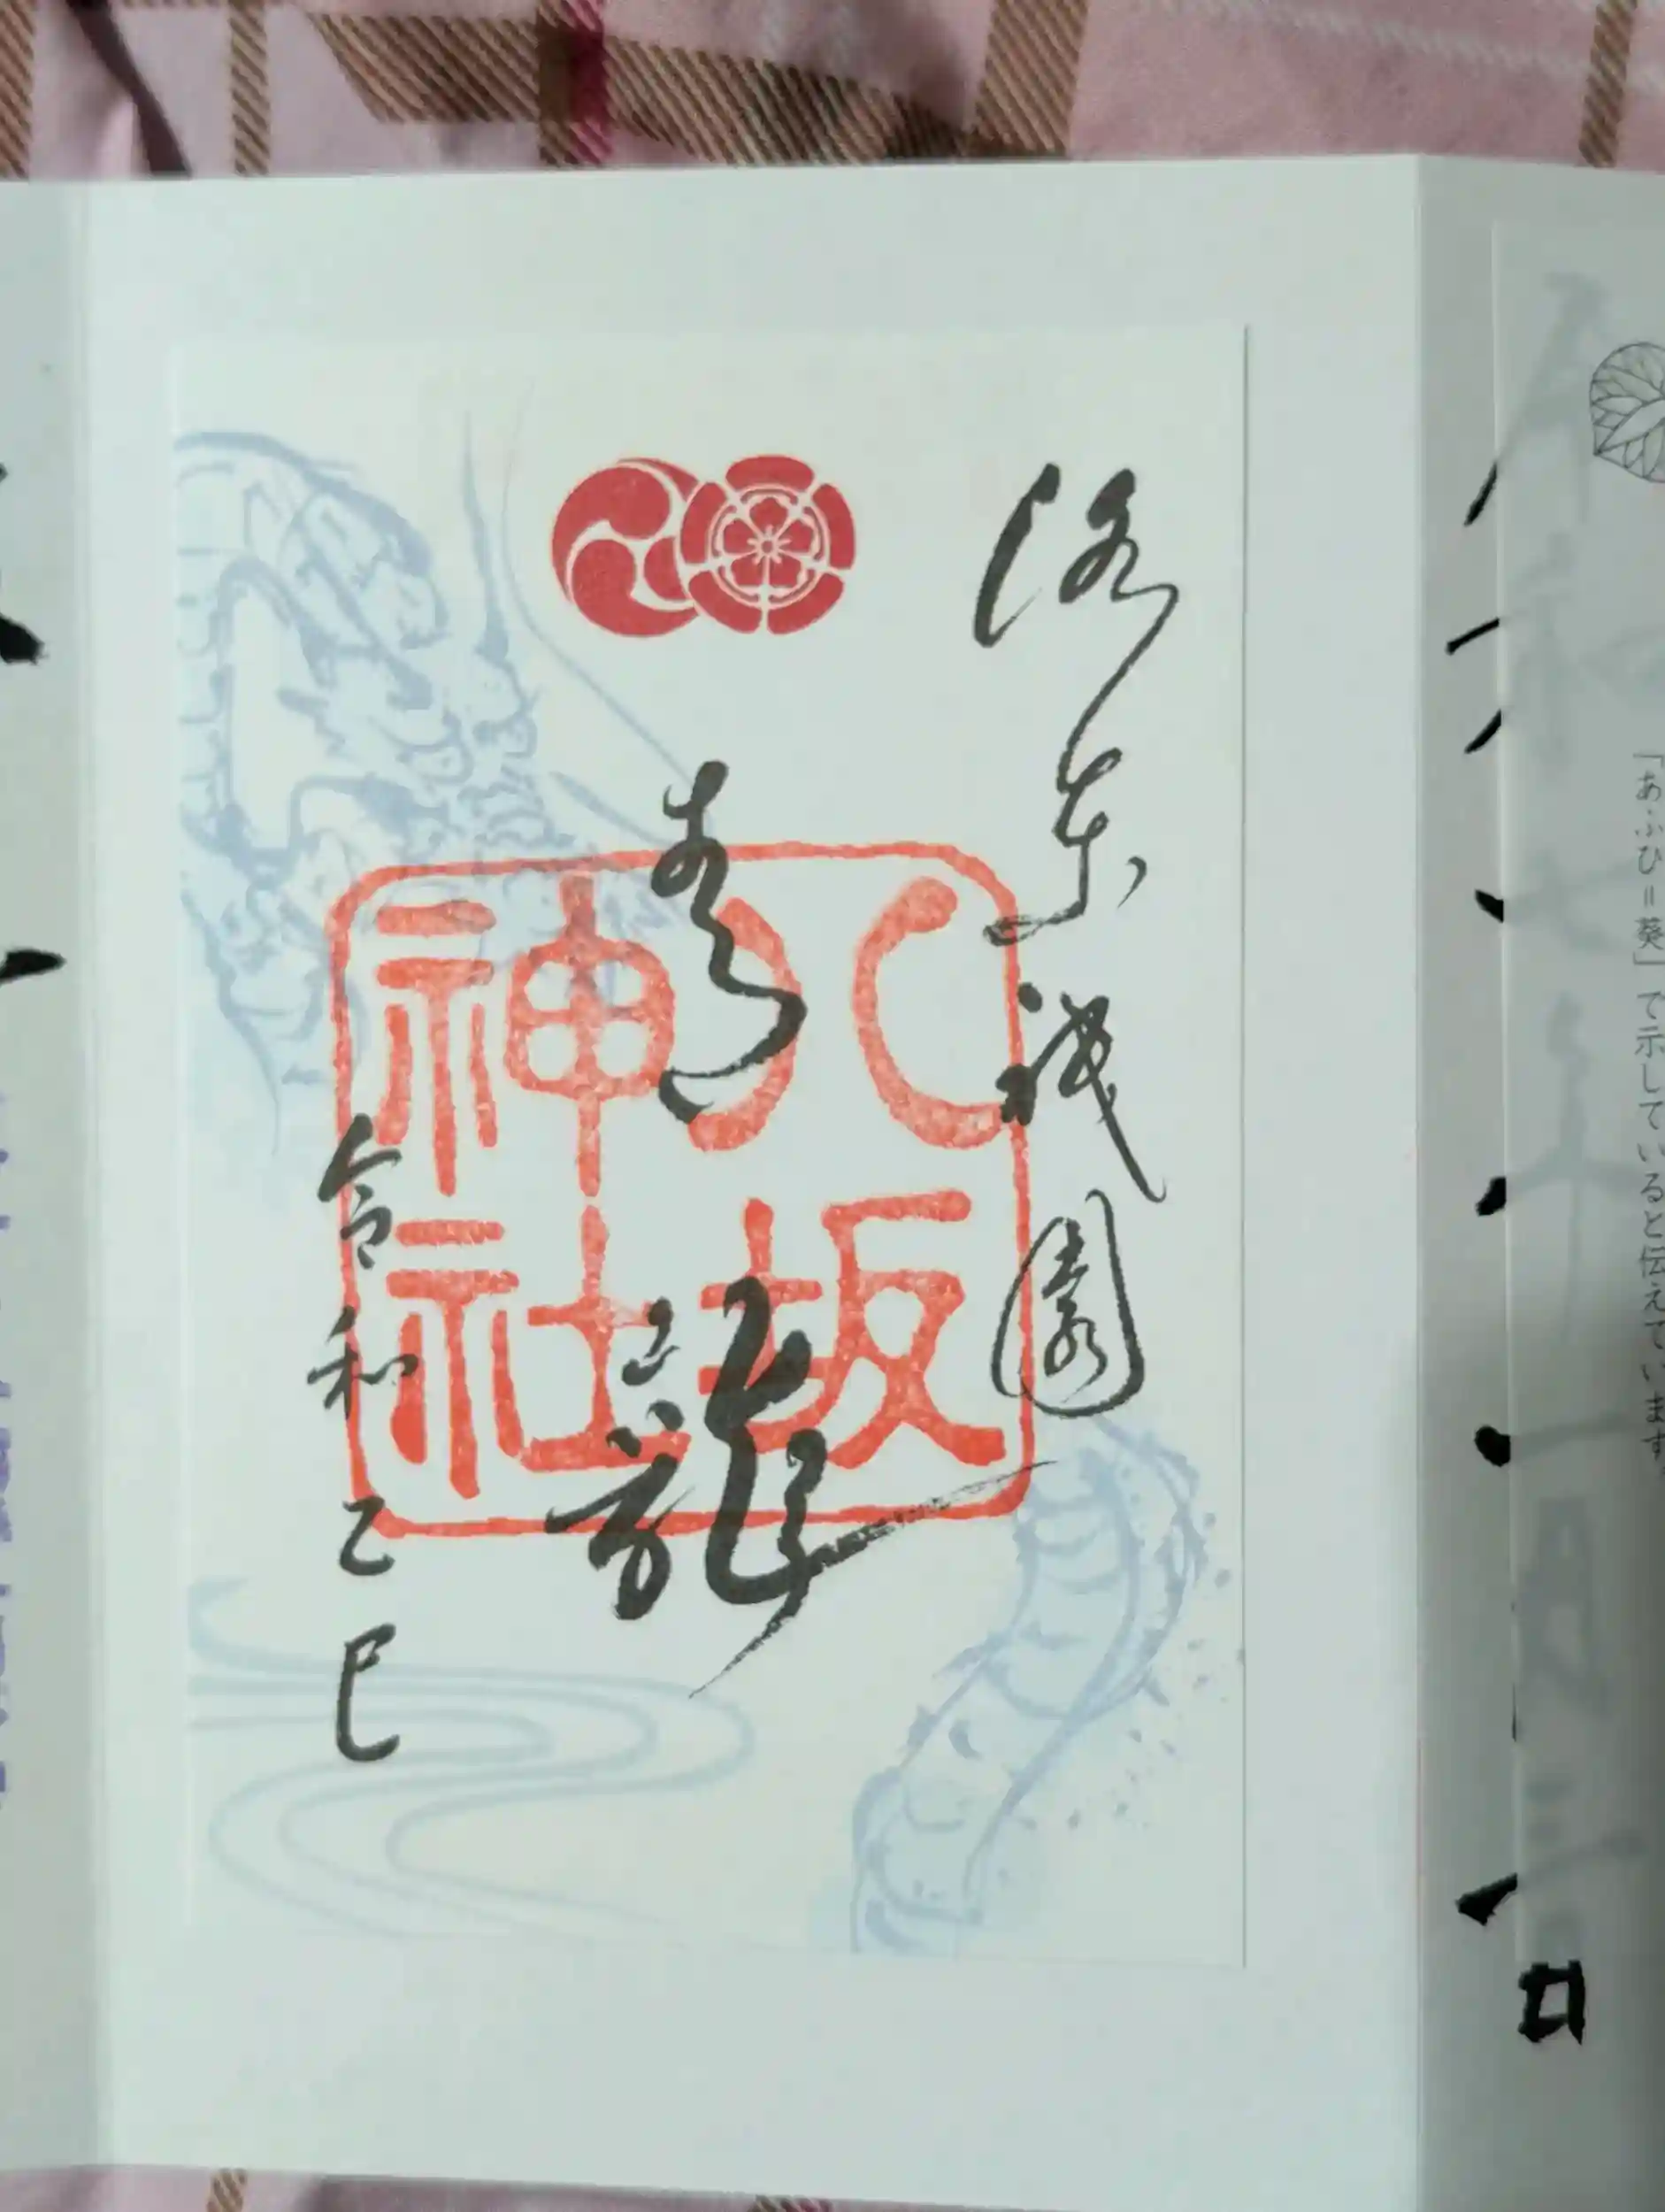 洛東祇園
青龍
八坂
神社
令和乙巳
「あふひ＝葵」で示していると伝えています